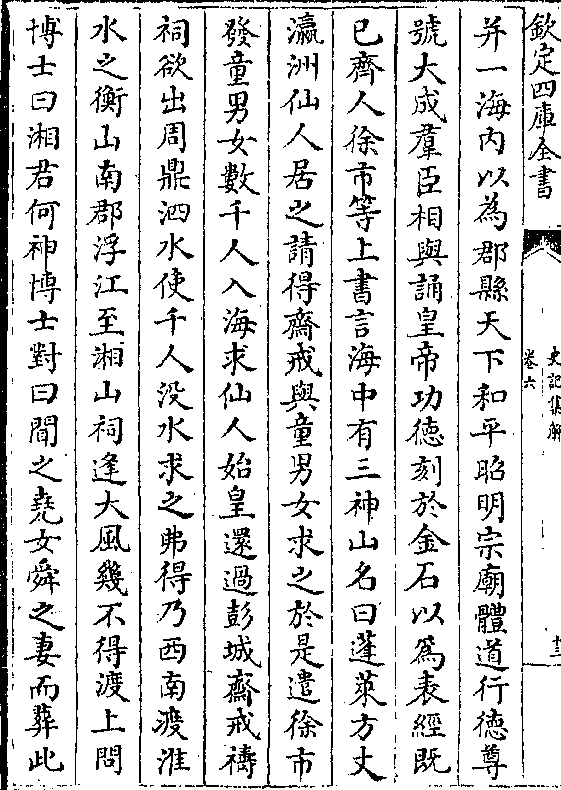 欽定四庫全書
史記集解
卷六
十三
并一海内以為郡縣天下和平昭明宗廟體道行德尊
號大成羣臣相與誦皇帝功德刻於金石以為表經既
已齊人徐市等上書言海中有三神山名曰蓬萊方丈
瀛洲仙人居之請得齋戒與童男女求之於是遣徐市
發童男女數千人入海求仙人始皇還過彭城齋戒禱
祠欲出周鼎泗水使千人没水求之弗得乃西南渡淮
水之衡山南郡浮江至湘山祠逢大風幾不得渡上問
博士曰湘君何神博士對曰聞之堯女舜之妻而葬此